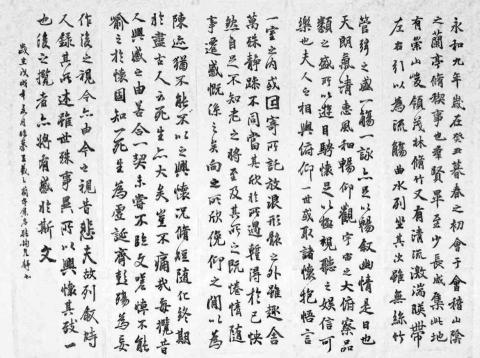 永和九年歲在癸丑暮春之初會于會稽山陰
之蘭亭脩稧事也羣賢畢至少長咸集此地
有崇山峻領茂林脩竹又有清流激湍暎帶
左右引以為流觴曲水列坐其次雖無絲竹
管弦之盛一觴一詠亦足以暢敘幽情是日也
天朗氣清惠風和暢仰觀宇宙之大俯察品
類之盛所以遊目騁懷足以極視聽之娛信可
樂也夫人之相與俯仰一世或取諸懷抱悟言
一室之內或因寄所託放浪形骸之外雖趣舍
萬殊靜躁不同當其欣於所遇暫得於己怏
然自足不知老之將至及其所之既惓情隨
事遷感慨係之矣向之所欣俛仰之間以為
陳迹猶不能不以之興懷況脩短隨化終期
於盡古人云死生亦大矣豈不痛哉每攬昔
人興感之由若合一契未嘗不臨文嗟悼不能
喻之於懷固知一死生為虛誕齊彭殤為妄
作後之視今亦由今之視昔悲夫故列敘時
人錄其所述雖世殊事異所以興懷其致一
也後之攬者亦將有感於斯文
戊戌年五月臨摹王羲之蘭亭序